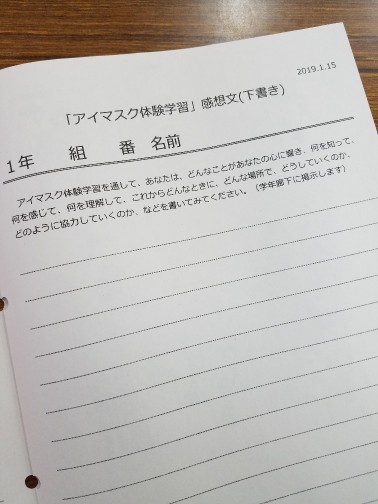 2019.1.15
「アイマスク体験学習」感想文(下書き)
1年　組　番　名前
アイマスク体験学習を通して、あなたは、どんなことがあなたの心に響き、何を知って、
何を感じて、何を理解して、これからどんなときに、どんな場所で、どうしていくのか、
どのように協力していくのか、などを書いてみてください。（学年廊下に掲示します）